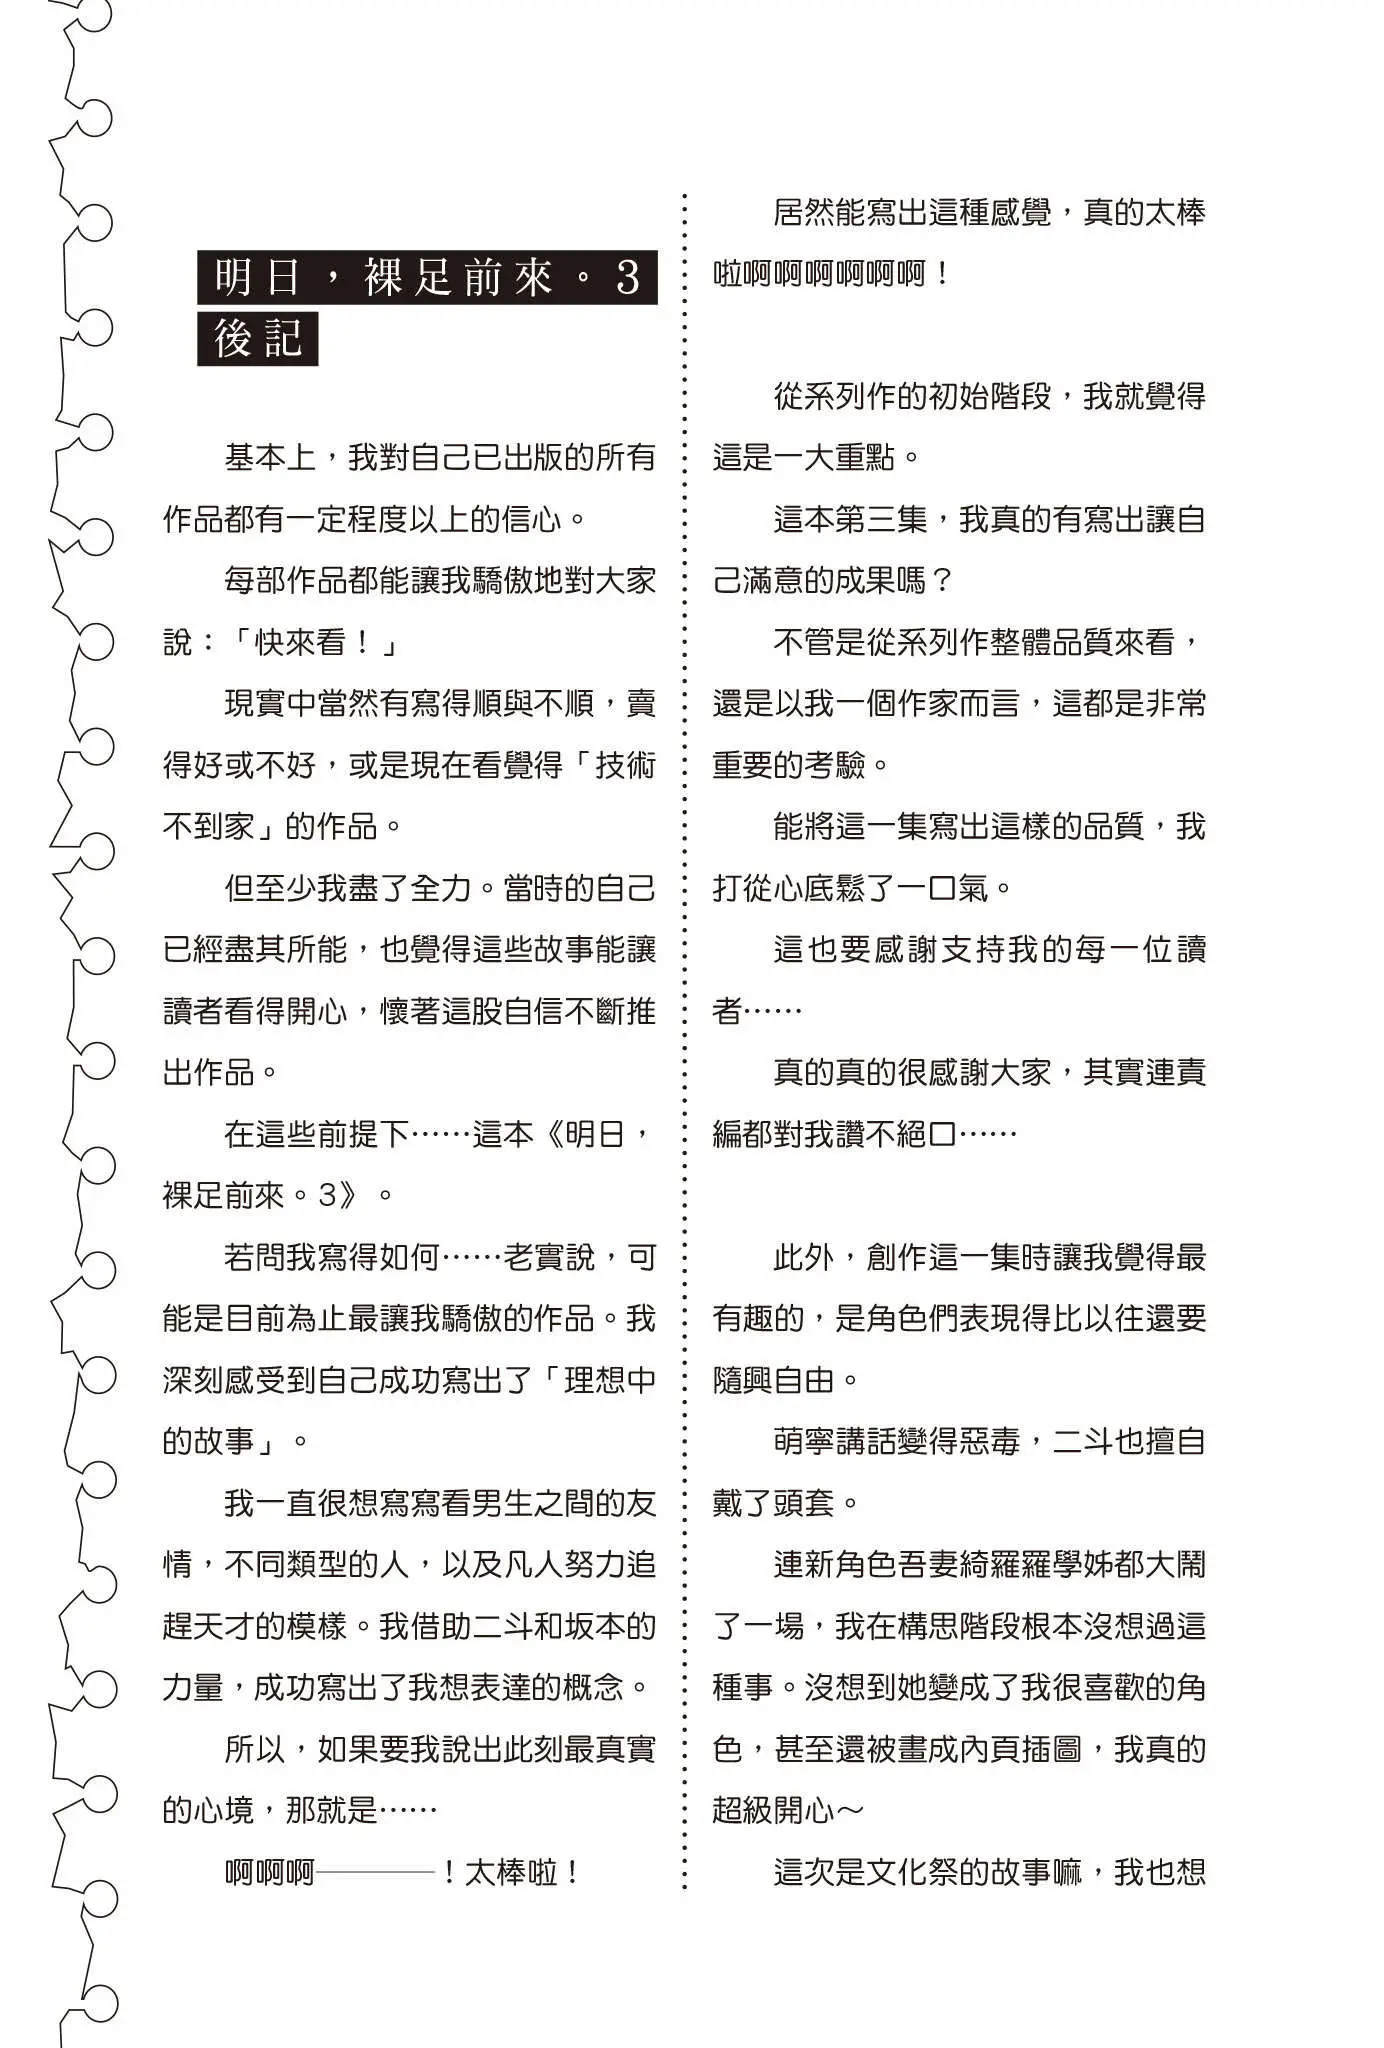 明日，裸足前來。3
後記
基本上，我對自己已出版的所有
作品都有一定程度以上的信心。
每部作品都能讓我驕傲地對大家
說：「快來看！」
現實中當然有寫得順與不順，賣
得好或不好，或是現在看覺得「技術
不到家」的作品。
但至少我盡了全力。當時的自己
已經盡其所能，也覺得這些故事能讓
讀者看得開心，懷著這股自信不斷推
出作品。
在這些前提下……這本《明日，
裸足前來。3》。
若問我寫得如何……老實說，可
能是目前為止最讓我驕傲的作品。我
深刻感受到自己成功寫出了「理想中
的故事」。
我一直很想寫寫看男生之間的友
情，不同類型的人，以及凡人努力追
趕天才的模樣。我借助二斗和坂本的
力量，成功寫出了我想表達的概念。
所以，如果要我說出此刻最真實
的心境，那就是……
啊啊啊————！太棒啦！
居然能寫出這種感覺，真的太棒
啦啊啊啊啊啊啊！
從系列作的初始階段，我就覺得
這是一大重點。
這本第三集，我真的有寫出讓自
己滿意的成果嗎？
不管是從系列作整體品質來看，
還是以我一個作家而言，這都是非常
重要的考驗。
能將這一集寫出這樣的品質，我
打從心底鬆了一口氣。
這也要感謝支持我的每一位讀
者……
真的真的很感謝大家，其實連責
編都對我讚不絕口……
此外，創作這一集時讓我覺得最
有趣的，是角色們表現得比以往還要
隨興自由。
萌寧講話變得惡毒，二斗也擅自
戴了頭套。
連新角色吾妻綺羅羅學姊都大鬧
了一場，我在構思階段根本沒想過這
種事。沒想到她變成了我很喜歡的角
色，甚至還被畫成內頁插圖，我真的
超級開心～
這次是文化祭的故事嘛，我也想